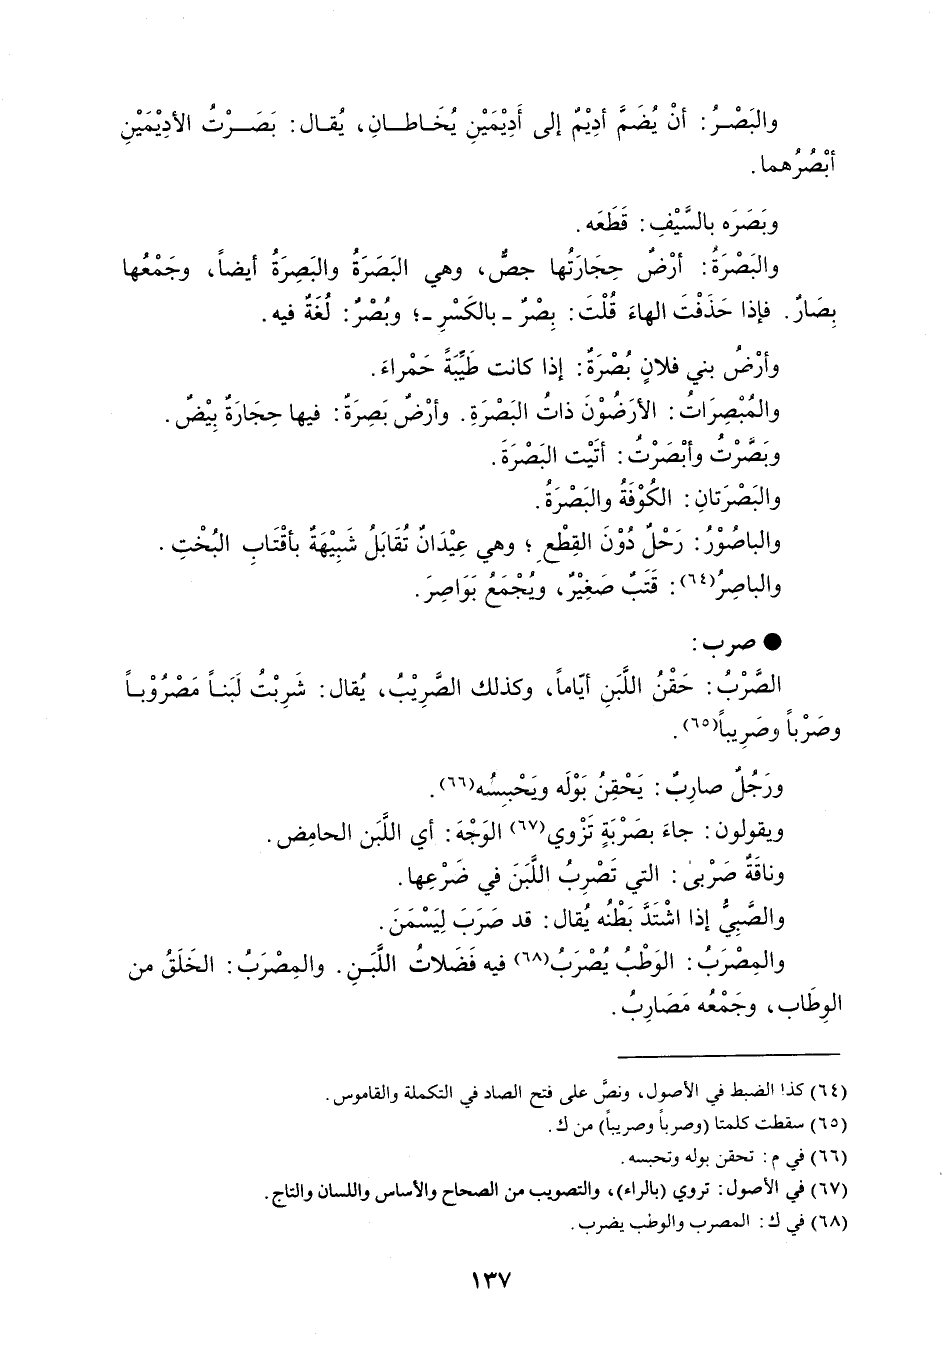 والبَصْرُ: أنْ يُضَمَّ أدِيْمٌ إلى أَدِيْمَيْنِ يُخَاطانِ، يُقال: بَصَرْتُ الأدِيْمَيْنِ
أبْصُرُهما.
وبَصَرَه بالسَّيْفِ: قَطَعَه.
والبَصْرَةُ: أرْضٌ حِجَارَتُها جصٌّ، وهي البَصَرَةُ والبَصِرَةُ أيضاً، وجَمْعُها
بِصَارٌ. فإذا حَذَفْتَ الهاءَ قُلْتَ: بِصْرٌ ـ بالكَسْرِ ـ؛ وبُصْرٌ: لُغَةٌ فيه.
وأرْضُ بني فلانٍ بُصْرَةٌ: إذا كانت طَيِّبَةً حَمْراءَ.
والمُبْصِرَاتُ: الأرَضُوْنَ ذاتُ البَصْرَةِ. وأرْضٌ بَصِرَةٌ: فيها حِجَارَةٌ بِيْضٌ.
وبَصَّرْتُ وأبْصَرْتُ: أتَيْت البَصْرَةَ.
والبَصْرَتانِ: الكُوْفَةُ والبَصْرَةُ.
والباصُوْرُ: رَحْلٌ دُوْنَ القِطْعِ؛ وهي عِيْدَانٌ تُقَابَلُ شَبِيْهَةٌ بأقْتَابِ البُخْتِ.
والباصِرُ(٦٤): قَتَبٌ صَغِيْرٌ، ويُجْمَعُ بَوَاصِرَ.
● صرب:
الصَّرْبُ: حَقْنُ اللَّبَنِ أيّاماً، وكذلك الصَّرِيْبُ، يُقال: شَرِبْتُ لَبَناً مَصْرُوْباً
وصَرْباً وصَرِيباً(٦٥).
ورَجُلٌ صارِبٌ: يَحْقِنُ بَوْلَه ويَحْبِسُه(٦٦).
ويقولون: جاءَ بصَرْبَةٍ تَزْوي(٦٧) الوَجْهَ: أي اللَّبَن الحامِض.
وناقَةٌ صَرْبىٰ: التي تَصْرِبُ اللَّبَنَ في ضَرْعِها.
والصَّبِيُّ إذا اشْتَدَّ بَطْنُه يُقال: قد صَرَبَ لِيَسْمَنَ.
والمِصْرَبُ: الوَطْبُ يُصْرَبُ(٦٨) فيه فَضَلاتُ اللَّبَنِ. والمِصْرَبُ: الخَلَقُ من
الوِطَاب، وجَمْعُه مَصَارِبُ.
(٦٤) كذا الضبط في الأصول، ونصَّ على فتح الصاد في التكملة والقاموس.
(٦٥) سقطت كلمتا (وصرباً وصريباً) من ك.
(٦٦) في م: تحقن بوله وتحبسه.
(٦٧) في الأصول: تروي (بالراء)، والتصويب من الصحاح والأساس واللسان والتاج.
(٦٨) في ك: المصرب والوطب يضرب.
١٣٧